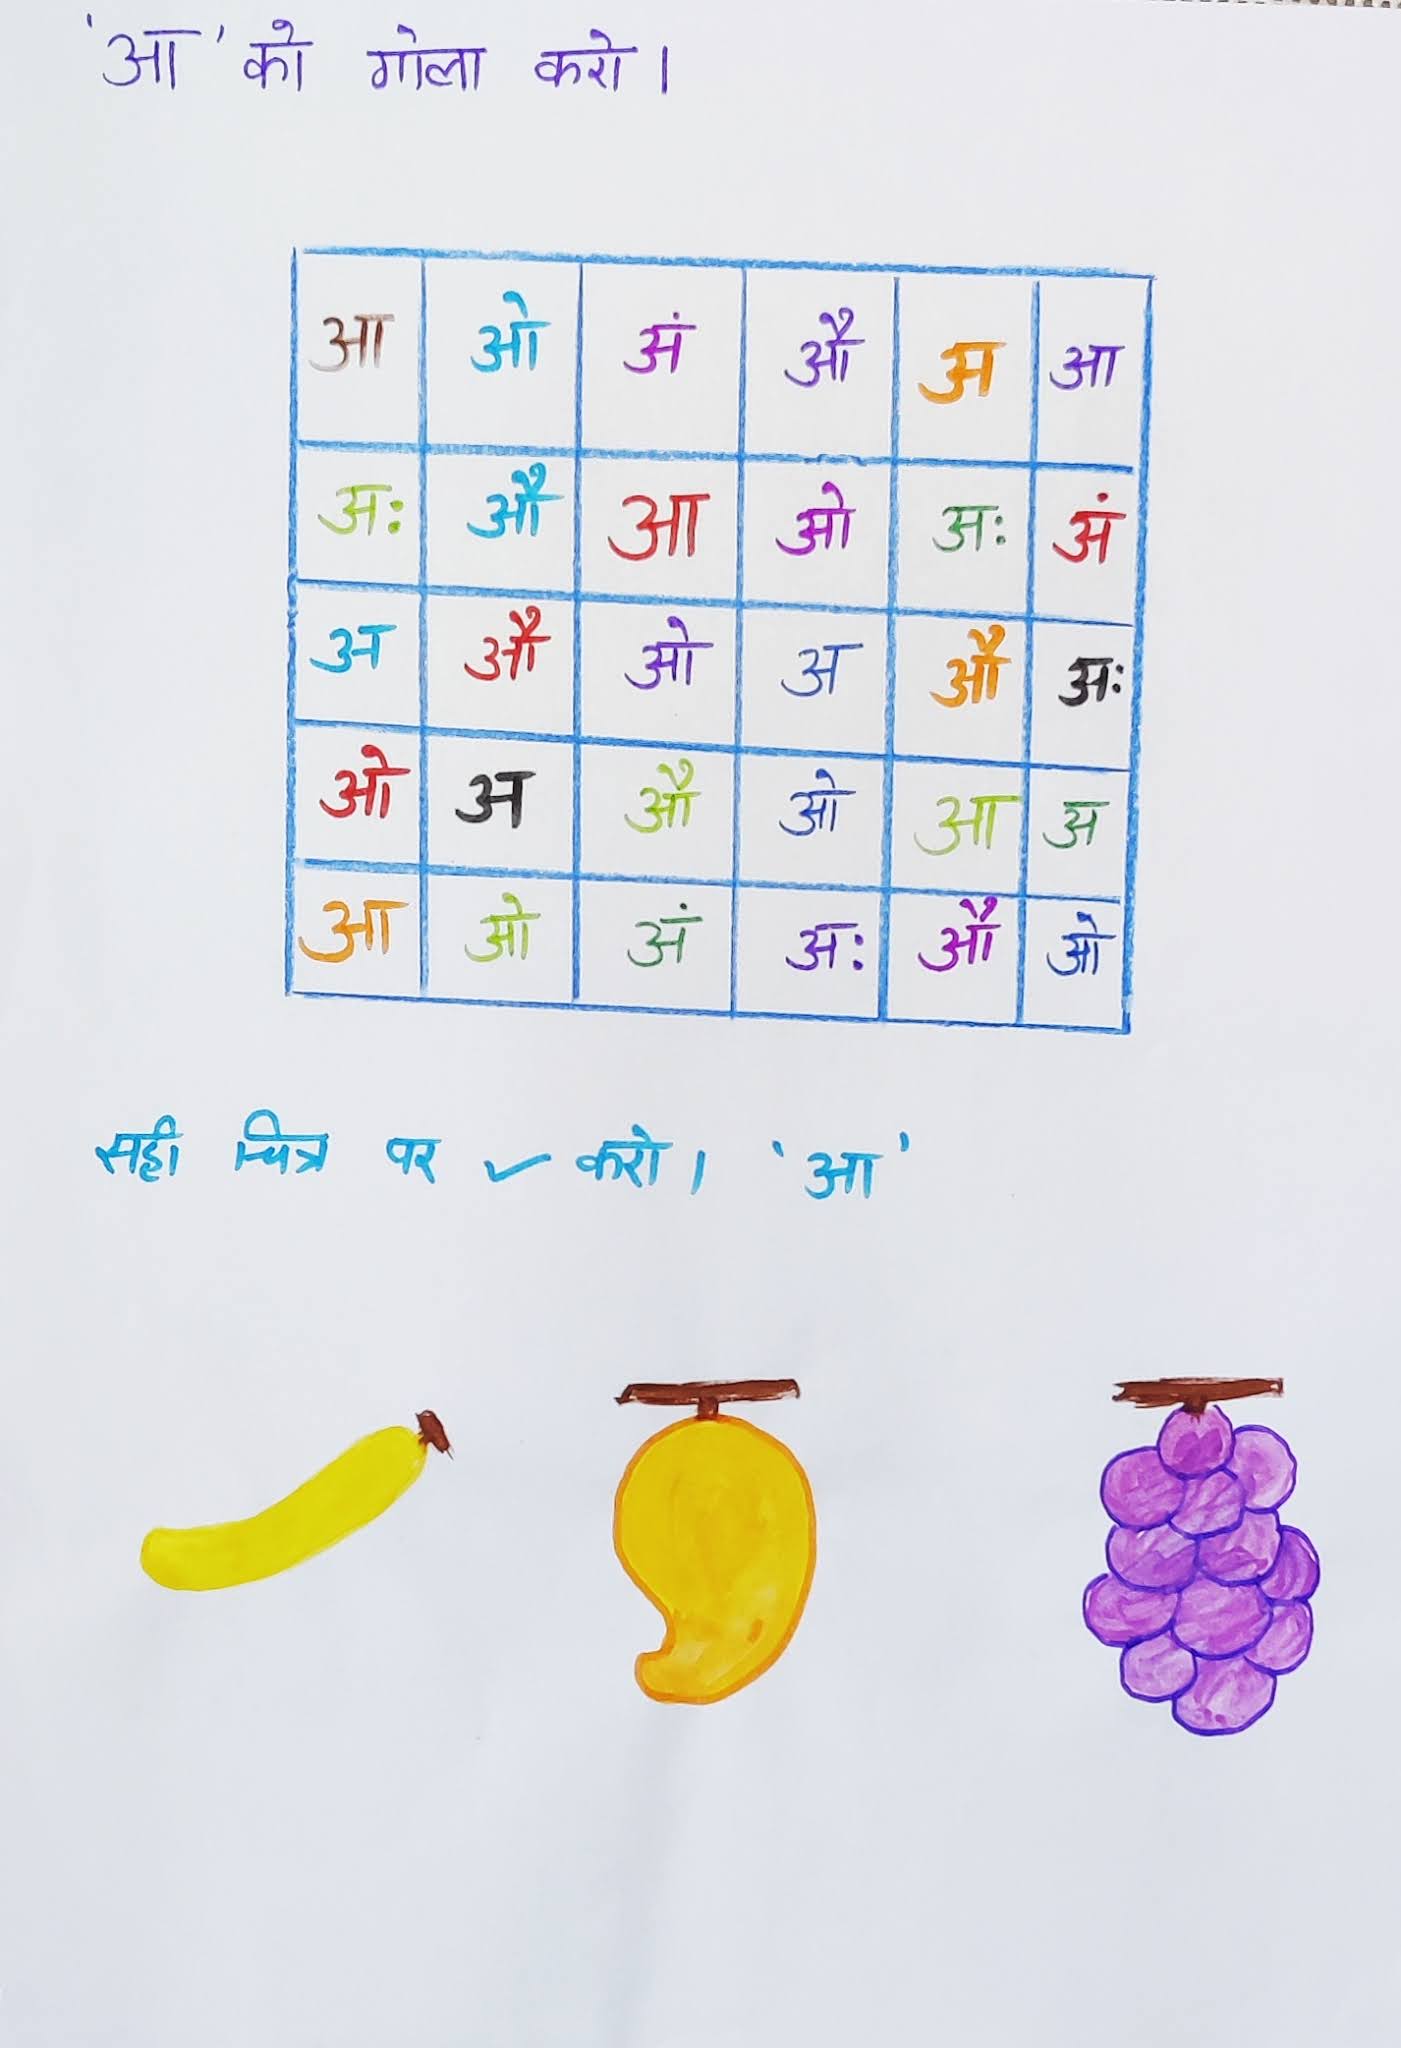 'आ' को गोला करो।
आ ओ अं औ अ आ
अः औ आ ओ अः अं
अ औ ओ अ औ अः
ओ अ औ ओ आ अ
आ ओ अं अः औ ओ
सही चित्र पर ✓ करो। 'आ'